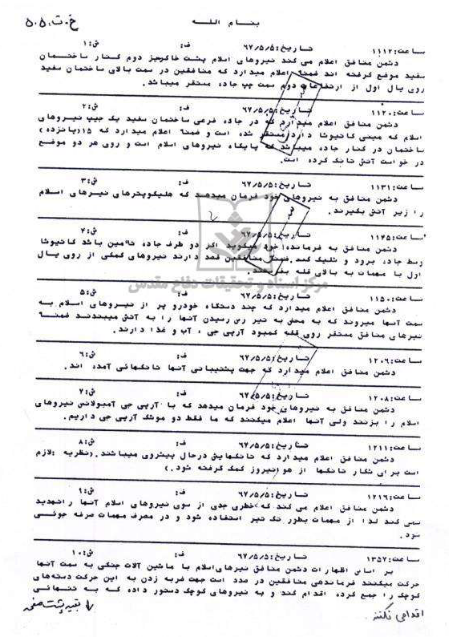 بنام الله
خ.ت. ۵۰۵
ساعت: ۱۱۱۲ تاریخ: ۶۷/۵/۵ ف: ش: ۱
دشمن منافق اعلام می کند نیروهای اسلام پشت خاکریز دوم کنار ساختمان
سفید موضع گرفته اند ضمنا" اعلام میدارد که منافقین در سمت بالای ساختمان سفید
روی یال اول از ارتفاعات دوم سمت چپ جاده مستقر میباشد.
ساعت: ۱۱۲۰ تاریخ: ۶۷/۵/۵ ف: ش: ۲
دشمن منافق اعلام میدارد که در جاده فرعی ساختمان سفید یک جیپ نیروهای
اسلام که مینی کاتیوشا دارد مستقر شده است و ضمنا" اعلام میدارد که ۱۵ (پانزده)
ساختمان در کنار جاده میباشد که پایگاه نیروهای اسلام است و روی هر دو موضع
در خواست آتش تانک کرده است.
ساعت: ۱۱۳۱ تاریخ: ۶۷/۵/۵ ف: ش: ۳
دشمن منافق به نیروهای خود فرمان میدهد که هلیکوپترهای نیروهای اسلام
را زیر آتش بگیرند.
ساعت: ۱۱۴۵ تاریخ: ۶۷/۵/۵ ف: ش: ۴
دشمن منافق به فرمانده خود میگوید اگر دو طرف جاده تامین باشد کاتیوشا
وسط جاده برود و شلیک کند ضمنا" منافقین قصد دارند نیروهای کمکی از روی یال
اول با مهمات به بالای قله بفرستند.
مرکز اسناد و تحقیقات دفاع مقدس
ساعت: ۱۱۵۰ تاریخ: ۶۷/۵/۵ ف: ش: ۵
دشمن منافق اعلام میدارد که چند دستگاه خودرو پر از نیروهای اسلام به
سمت آنها میروند که به محض به تیر رس رسیدن آنها را به آتش میبندند ضمنا"
نیروهای منافق مستقر روی قله کمبود آرپی جی ، آب و غذا دارند.
ساعت: ۱۲۰۶ تاریخ: ۶۷/۵/۵ ف: ش: ۶
دشمن منافق اعلام میدارد که جهت پشتیبانی آنها تانکهائی آمده اند.
ساعت: ۱۲۰۸ تاریخ: ۶۷/۵/۵ ف: ش: ۷
دشمن منافق به نیروهای خود فرمان میدهد که با آرپی جی آمبولانس نیروهای
اسلام را بزنند ولی آنها اعلام میکنند که ما فقط دو موشک آرپی جی داریم.
ساعت: ۱۲۱۱ تاریخ: ۶۷/۵/۵ ف: ش: ۸
دشمن منافق اعلام میدارد که تانکهایش درحال پیشروی میباشند. (نظریه :لازم
است برای شکار تانکها از هوانیروز کمک گرفته شود.)
ساعت: ۱۲۱۶ تاریخ: ۶۷/۵/۵ ف: ش: ۹
دشمن منافق اعلام می کند که خطری جدی از سوی نیروهای اسلام آنها راتهدید
نمی کند لذا از مهمات بطور تک تیر استفاده شود و در مصرف مهمات صرفه جوئی
شود.
ساعت: ۱۳۵۷ تاریخ: ۶۷/۵/۵ ف: ش: ۱۰
بر اساس اظهارات دشمن منافق نیروهای اسلام با ماشین آلات جنگی به سمت آنها
حرکت میکنند فرماندهی منافقین در صدد است جهت ضربه زدن به این حرکت دسته‌های
کوچک را جمع کرده اقدام کند و به نیروهای کوچک دستور داده که به تنهائی
اقدامی نکنند.
بقیه پشت صفحه